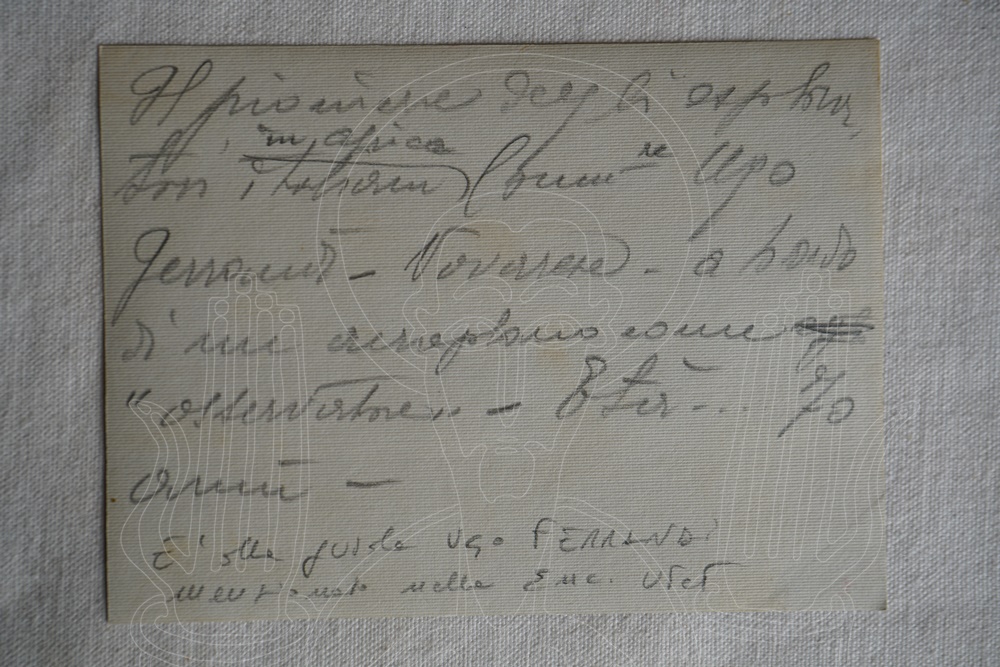 Il pioniere degli esplora-
tori italiani in africa Comm.re Ugo
Ferrandi - Novarese - a bordo
d'un aeroplano come
"osservatore" - Età... 70
anni -
E' alla guida Ugo FERRANDI
menzionato nella Enc. UTET